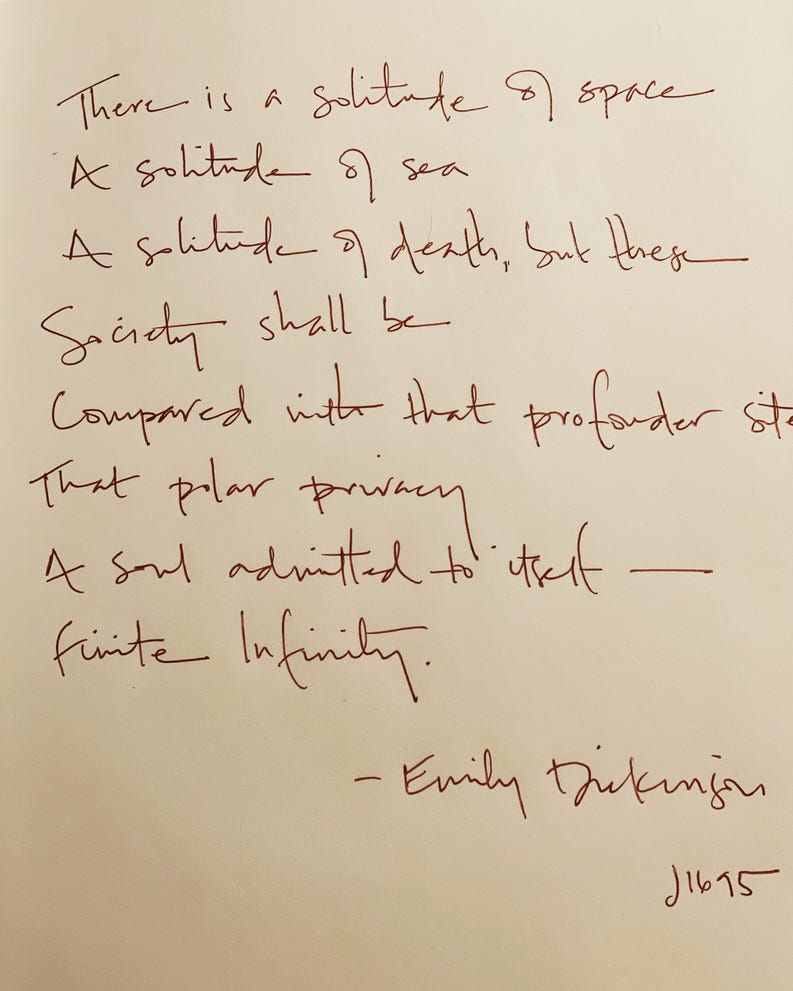 There is a solitude of space
A solitude of sea
A solitude of death, but these
Society shall be
Compared with that profounder site
That polar privacy
A soul admitted to itself —
Finite Infinity.
– Emily Dickinson
J1695